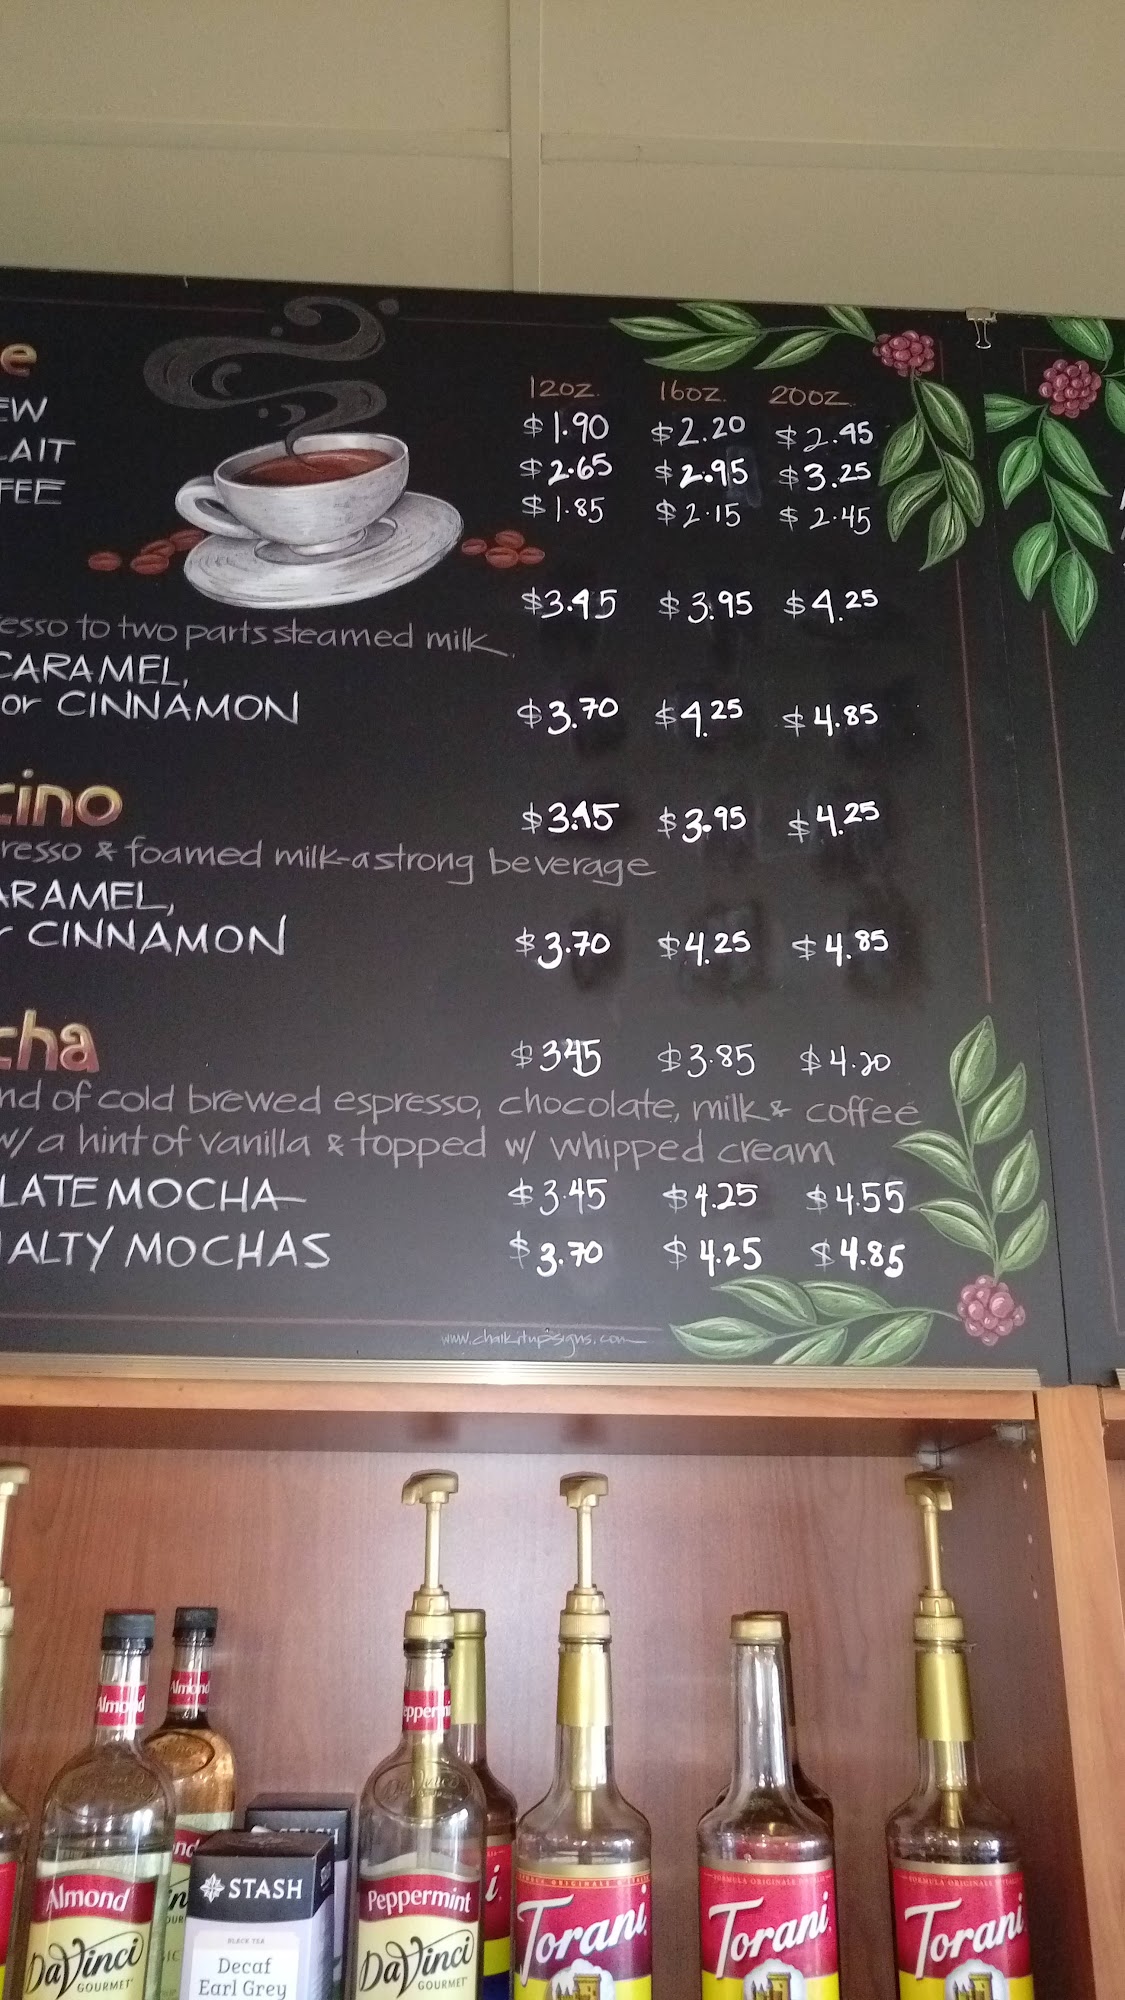 e
12oz. 16oz. 20oz.
EW $1.90 $2.20 $2.45
LAIT $2.65 $2.95 $3.25
FEE $1.85 $2.15 $2.45
$3.45 $3.95 $4.25
esso to two parts steamed milk.
CARAMEL,
or CINNAMON $3.70 $4.25 $4.85
cino $3.45 $3.95 $4.25
resso & foamed milk-a strong beverage
ARAMEL,
r CINNAMON $3.70 $4.25 $4.85
cha $345 $3.85 $4.20
nd of cold brewed espresso, chocolate, milk & coffee
w/ a hint of vanilla & topped w/ whipped cream
LATE MOCHA $3.45 $4.25 $4.55
IALTY MOCHAS $3.70 $4.25 $4.85
www.chalkitupsigns.com
Almond
Almond
Peppermin
STASH
Almond
DaVinci
GOURMET
STASH
BLACK TEA
Decaf
Earl Grey
Peppermint
DaVinci
GOURMET
Torani
FORMULA ORIGINALE D'ITALIA
Torani
FORMULA ORIGINALE D'ITALIA
Torani